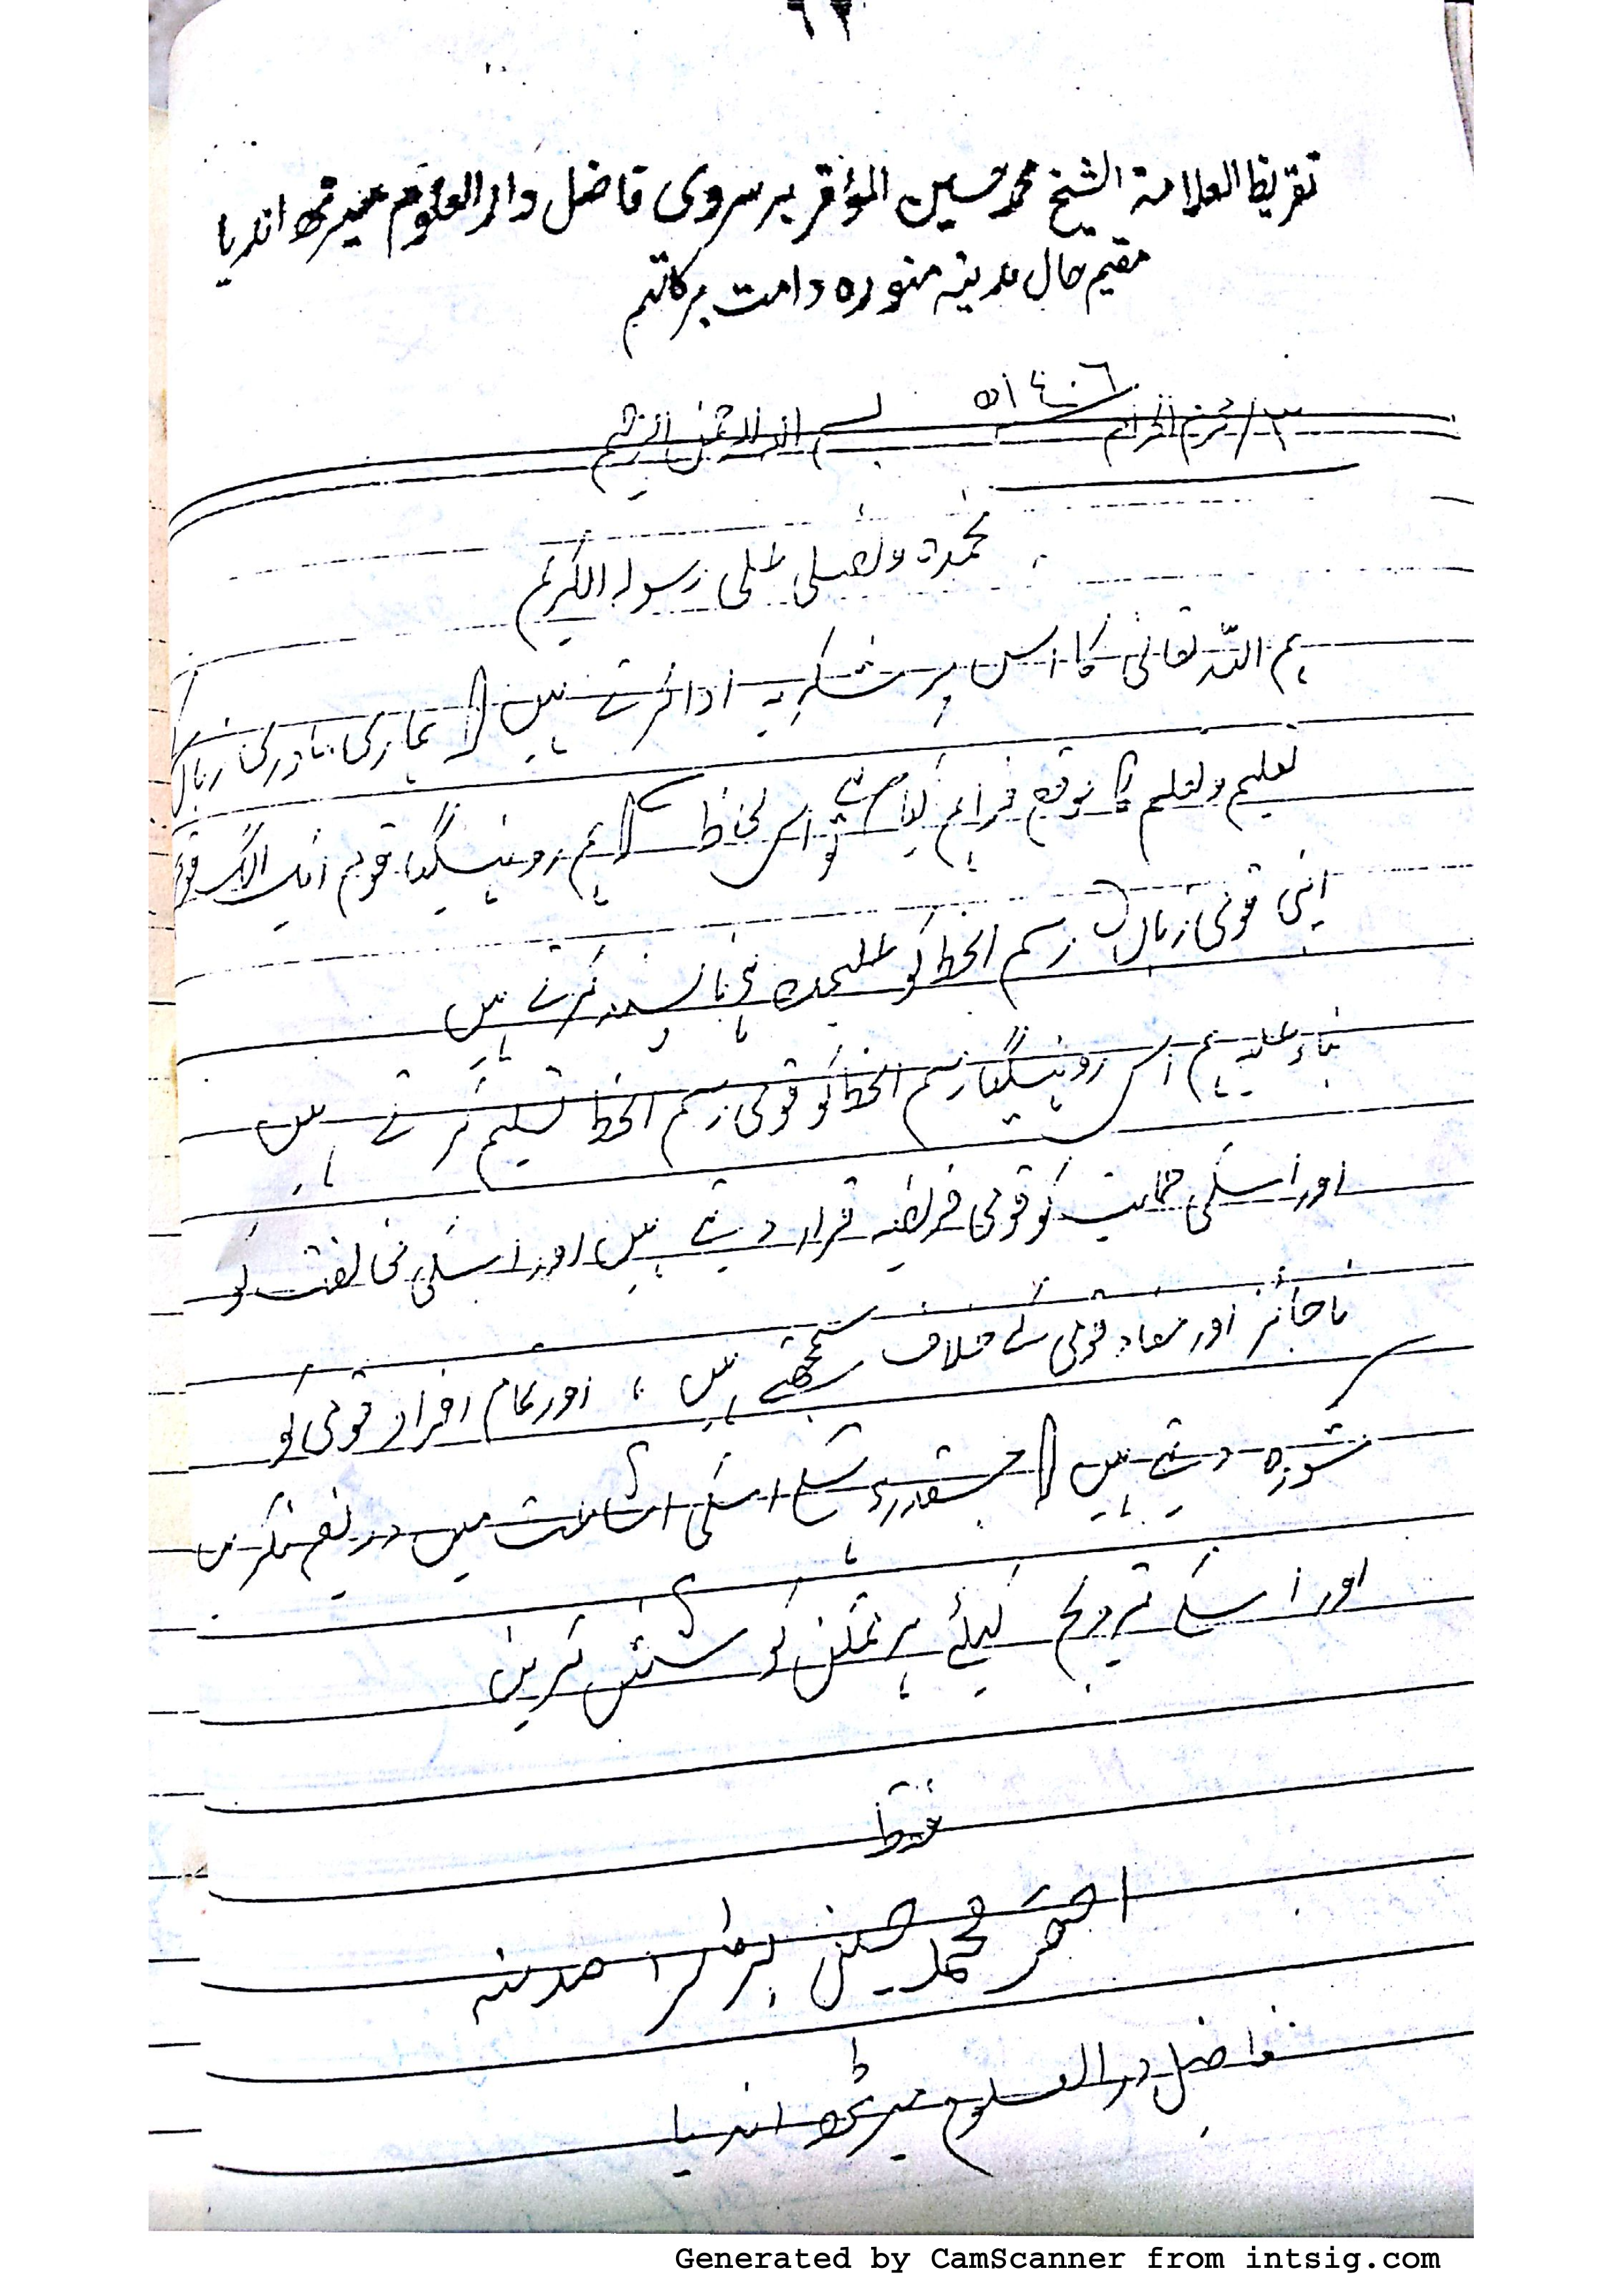 ٦٢
تقریظ العلامة الشیخ محمد حسین المؤقر بر سروی فاضل دار العلوم میرٹھ انڈیا
مقیم حال مدینہ منورہ دامت برکاتہم
٣/ محرم الحرام ١٤٠٦ھ بسم اللہ الرحمن الرحیم
نحمدہ ونصلی علی رسولہ الکریم
ہم اللہ تعالی کا اس پر شکریہ ادا کرتے ہیں کہ ہماری مادری زبان
تعلیم وتعلم کا موقع فراہم کیا ہے تو اس لحاظ سے کہ ہم روہنگیا قوم ایک الگ قوم
اپنی قومی زبان رسم الخط کو علیحدہ ہی پسند کرتے ہیں
بناء علیہ ہم اس روہنگیا رسم الخط کو قومی رسم الخط تسلیم کرتے ہیں
اور اسکی حمایت کو قومی فریضہ قرار دیتے ہیں اور اسکی مخالفت کو
ناجائز اور مفاد قومی کے خلاف سمجھتے ہیں ، اور تمام افراد قومی کو
مشورہ دیتے ہیں کہ جسقدر ہو سکے اسکی اشاعت میں دریغ نکریں
اور اسکے ترویج کیلئے ہر ممکن کوشش کریں
فقط
احقر محمد حسین مدینہ
فاضل دار العلوم میرٹھ انڈیا
Generated by CamScanner from intsig.com